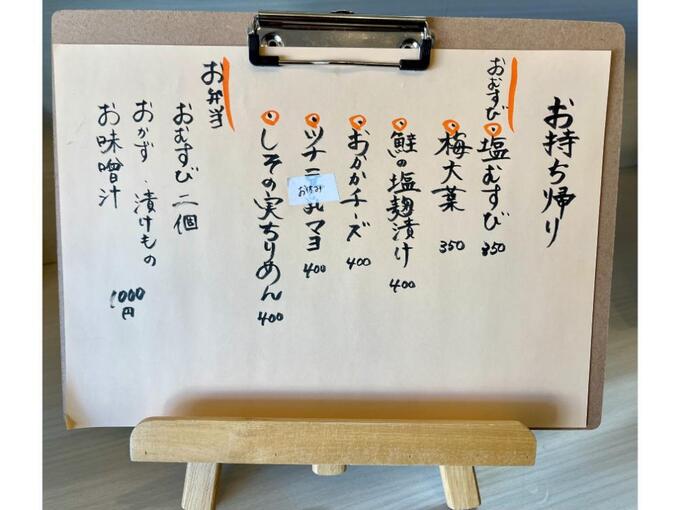 お持ち帰り
おむすび
塩むすび 350
梅大葉 350
鮭の塩麹漬け 400
おかかチーズ 400
ツナ豆乳マヨ 400
お休み
しその実ちりめん 400
お弁当
おむすび二個
おかず、漬けもの
お味噌汁 1000円